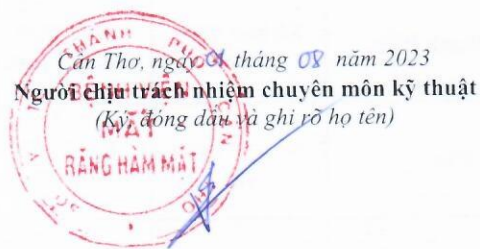 Cần Thơ, ngày 01 tháng 08 năm 2023
Người chịu trách nhiệm chuyên môn kỹ thuật
(Ký, đóng dấu và ghi rõ họ tên)
THÀNH PHỐ CẦN THƠ
BỆNH VIỆN
MẮT
RĂNG HÀM MẶT